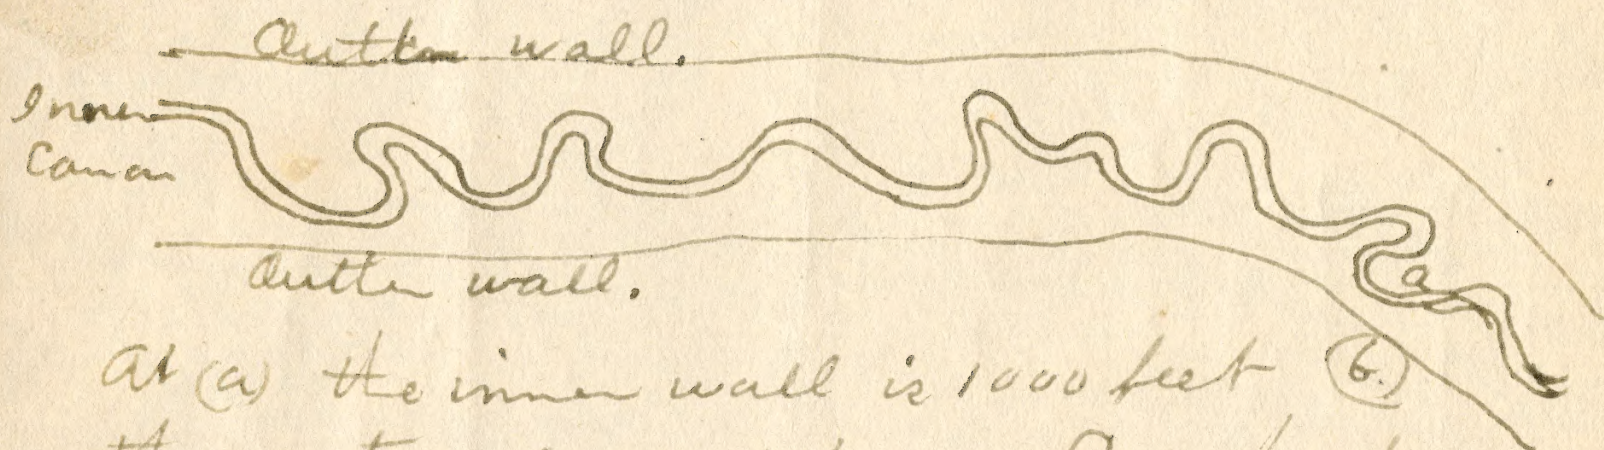 Outter wall.
Inner
Canon
a
Outter wall.
At (a) the inner wall is 1000 feet (b.)